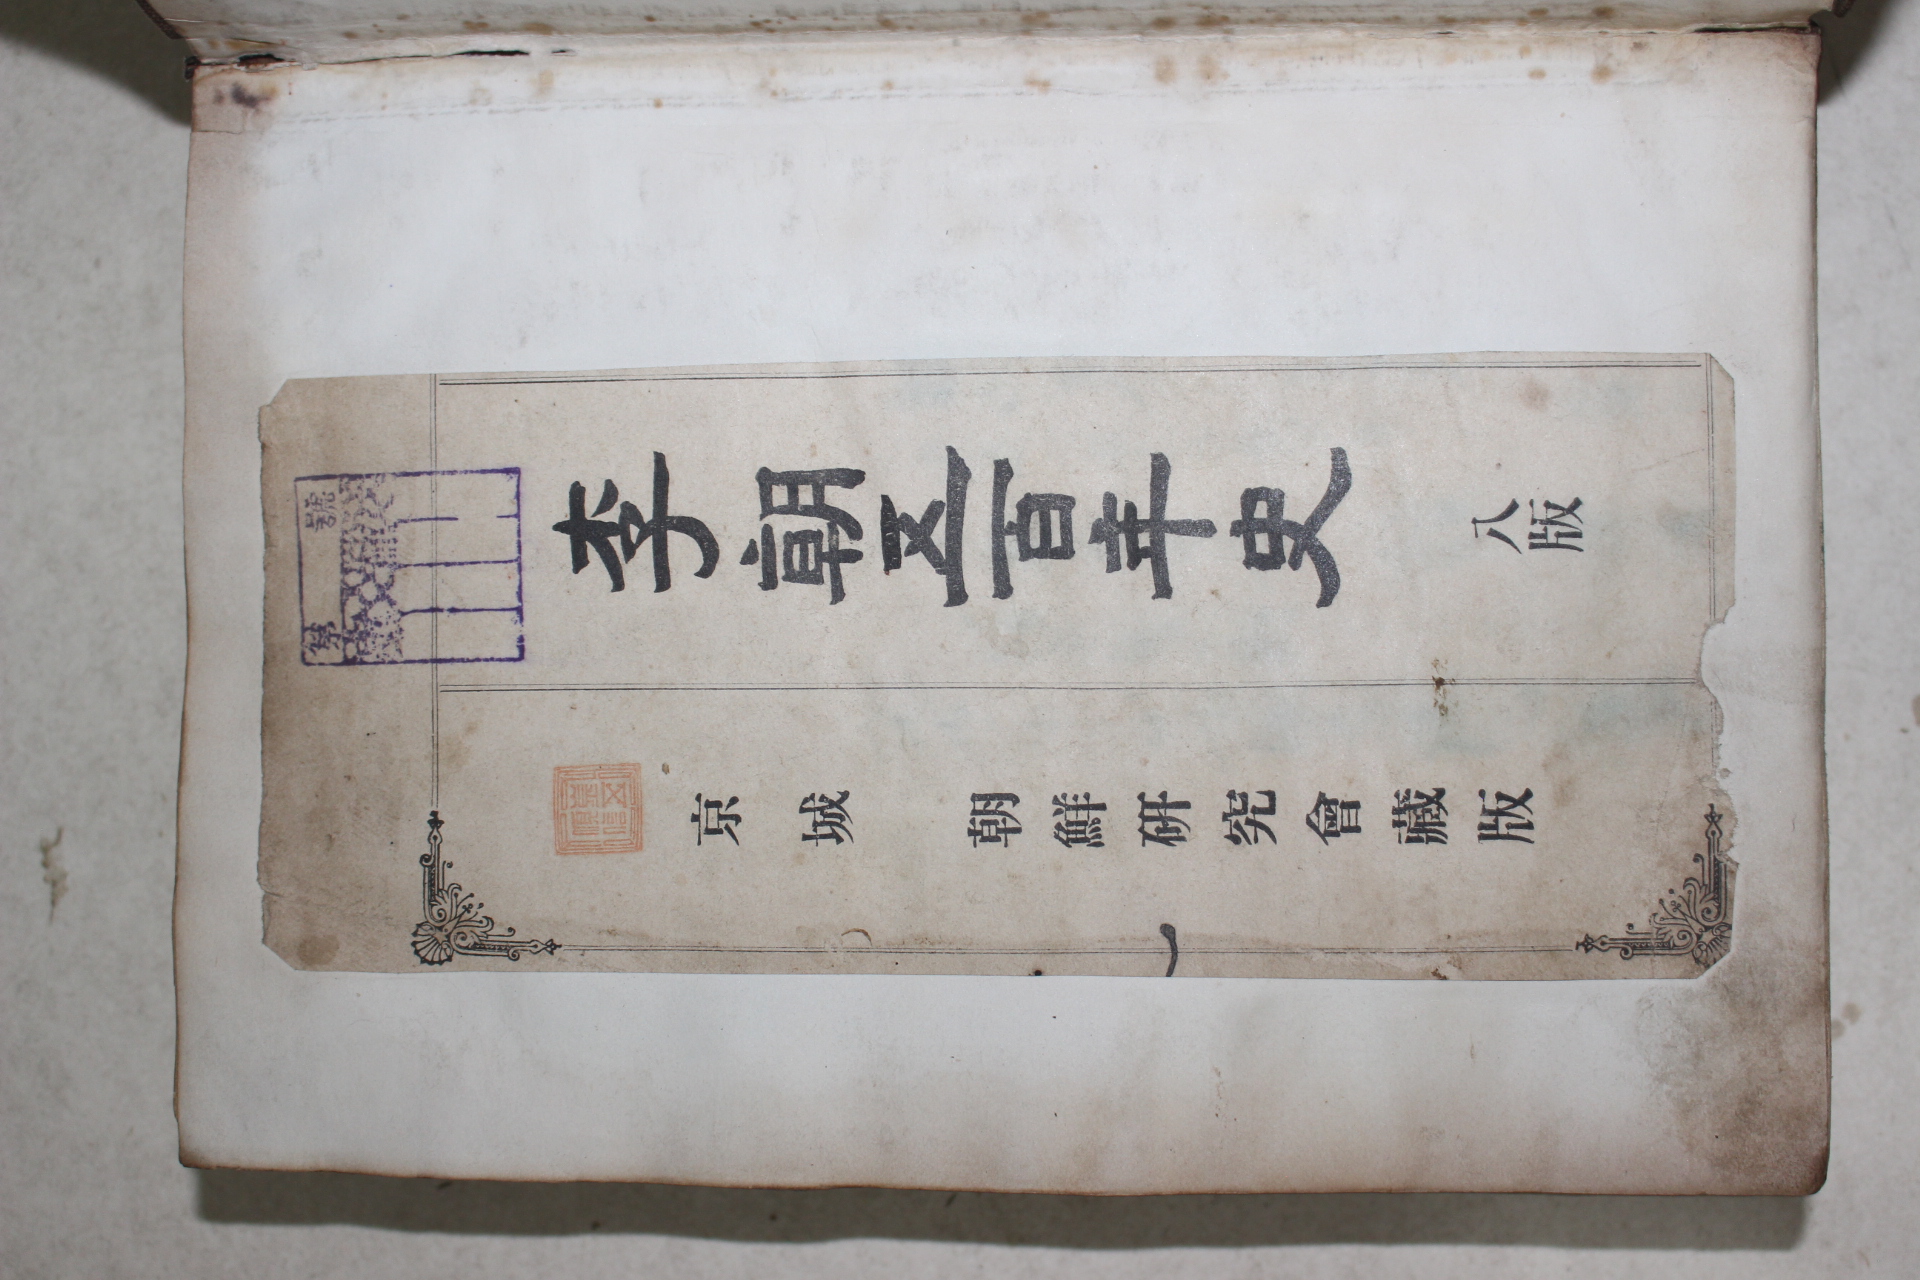 李朝五百年史
八版
京城 朝鮮研究會藏版
號